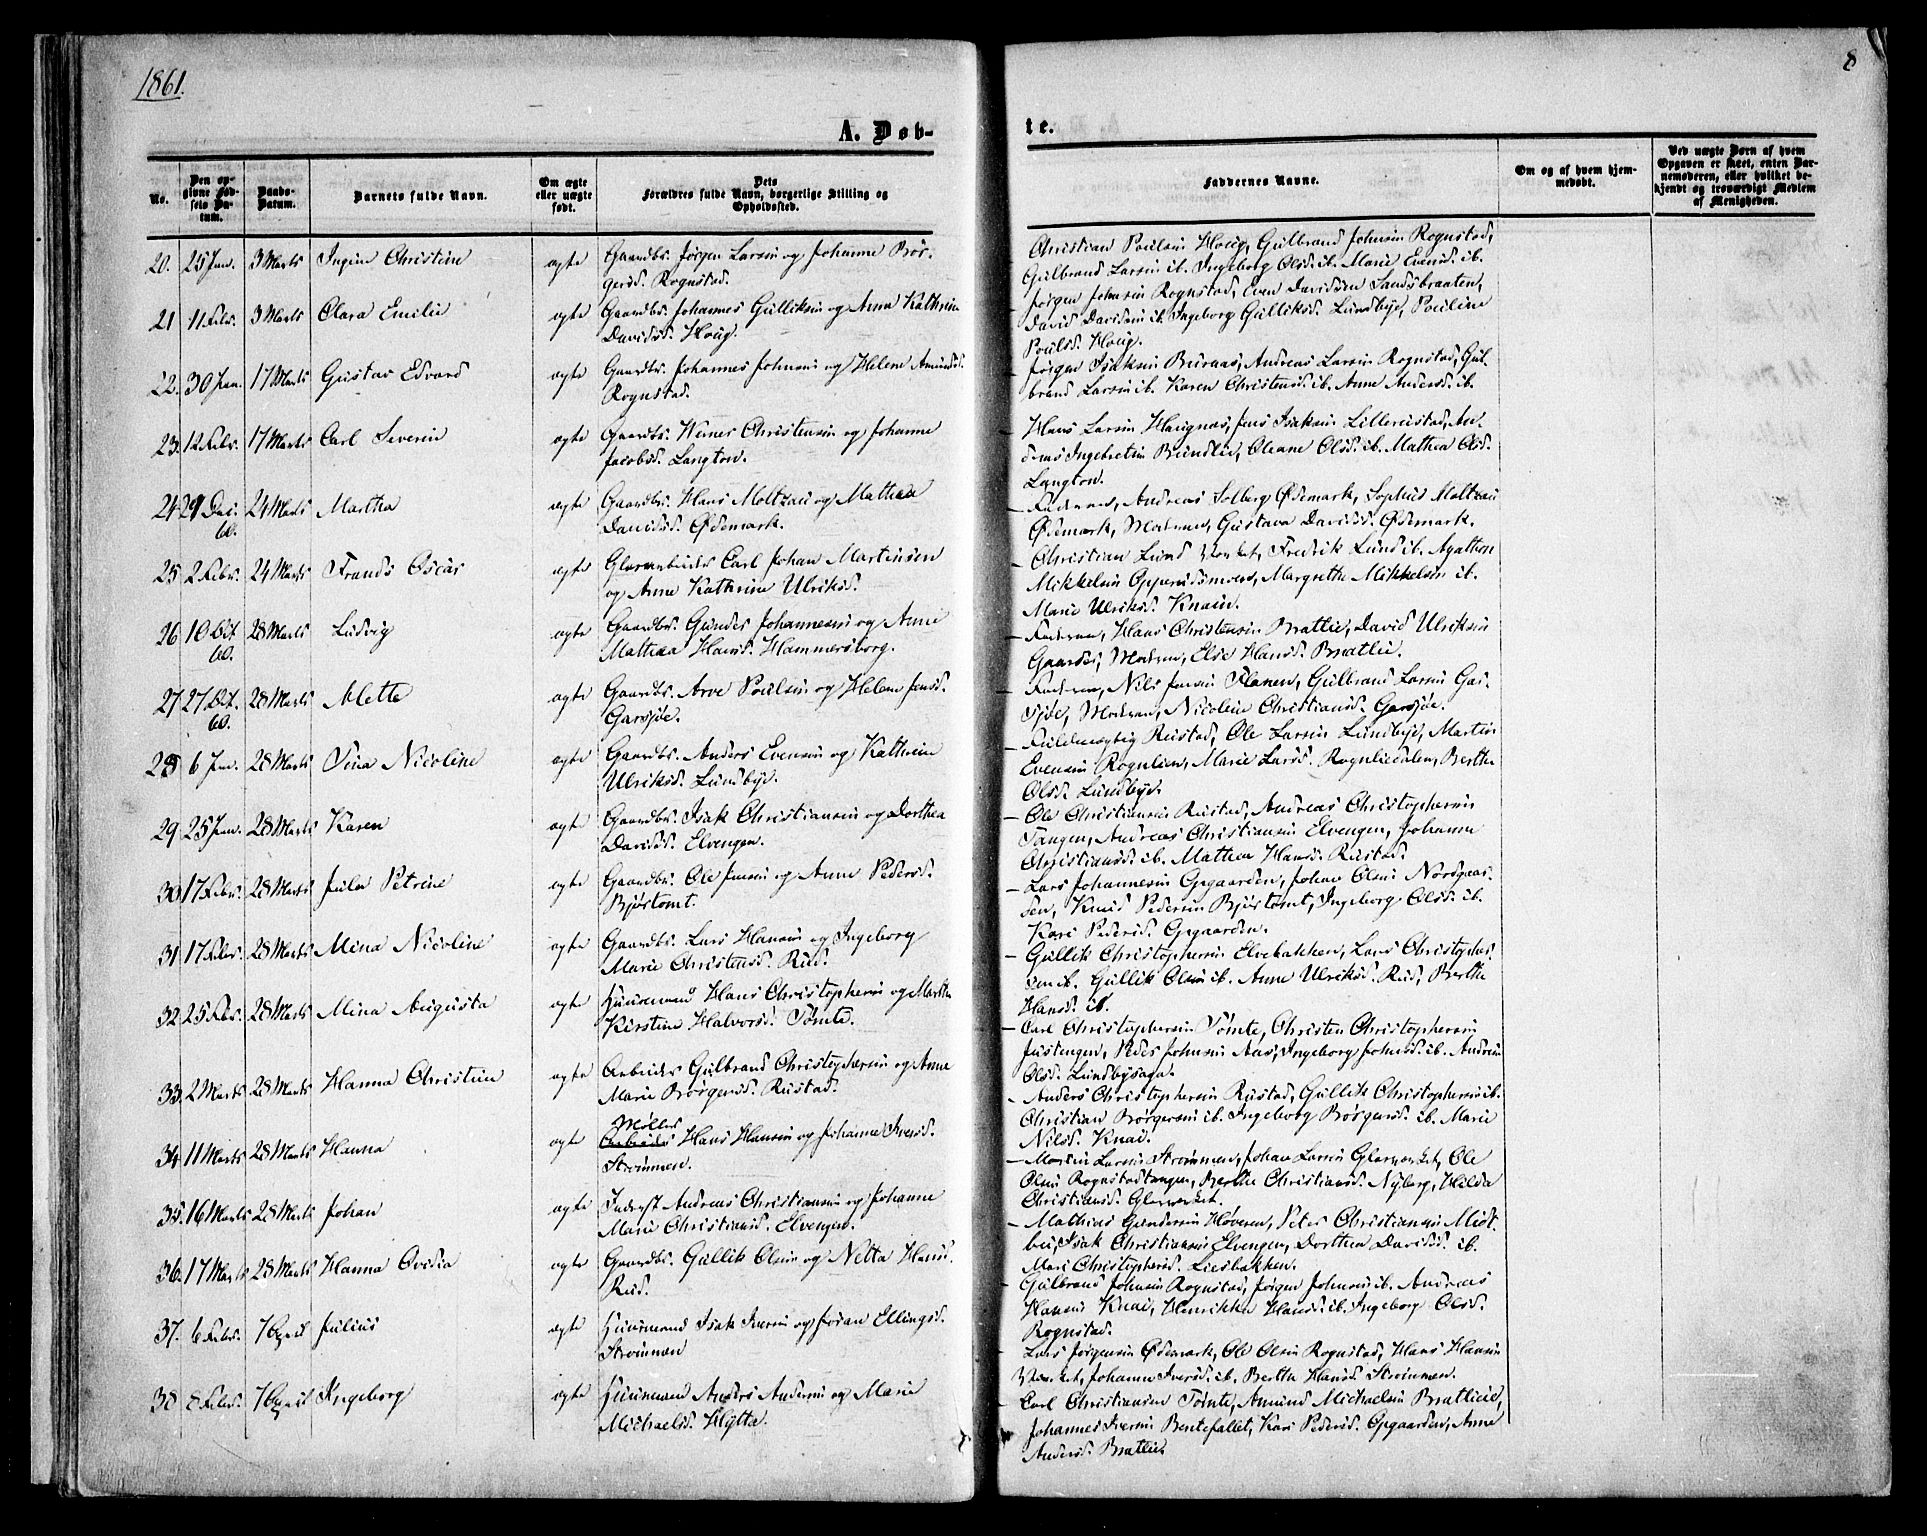 1861.
8
A. Døb-
te.
No.
Den op-
givne Fød-
sels Da-
tum.
Daabs-
Datum.
Barnets fulde Navn.
Om ægte
eller uægte
født.
Dets
Forældres fulde Navn, borgerlige Stilling og
Opholdssted.
Faddernes Navne.
Om og af hvem hjem-
medøbt.
Ved uægte Børn af hvem
Opgaven er skeet, enten Bar-
nemoderen, eller hvilket be-
kjendt og troværdigt Medlem
af Menigheden.
20. 25 Jan. 3 Marts Ingine Christine ægte Gaardbr. Jørgen Larsen og Johanne Bør-
gersd. Rognstad.
Christian Poulsen Houg, Gulbrand Johnsen Rognstad,
Gulbrand Larsen ib. Ingeborg Olsd. ib. Marie Evensd. ib.
21 11 Febr. 3 Marts Clara Emilie ægte Gaardbr. Johannes Gulliksen og Anne Kathrine
Davidsd. Houg.
Jørgen Johnsen Rognstad, Even Davidsen Sandsbraaten,
David Davidsen ib. Ingeborg Gulliksd. Lundbye, Pouline
Poulsd. Houg.
22. 30 Jan. 17 Marts Gustav Edvard ægte Gaardbr. Johannes Johnsen og Helene Amundsd.
Rognstad.
Jørgen Isaksen Buraas, Andreas Larsen Rognstad, Gul-
brand Larsen ib. Karen Christensd. ib. Anne Andersd. ib.
23. 12 Febr. 17 Marts Carl Severin ægte Gaardbr. Werner Christensen og Johanne
Jacobsd. Langton.
Hans Larsen Haugnæs, Jens Isaksen Lillerustad, An-
dreas Ingebretsen Brundlie, Oleane Olsd. ib. Mathea Olsd.
Langton.
24 29 Dec. 60. 24 Marts Martha ægte Gaardbr. Hans Moltzau og Mathea
Davidsd. Ødemark.
– Faderen, Andreas Solberg Ødemark, Sophus Moltzau
Ødemark, Moderen, Gustava Davidsd. Ødemark.
25 2 Febr. 24 Marts Frands Oscar ægte Glasarbeider Carl Johan Martinsen
og Anne Kathrine Ulriksd.
– Christian Lund Værket, Fredrik Lund ib. Agathon
Mikkelsen Opperudsmoen, Margrethe Mikkelsen ib.
Marie Ulriksd. Knain.
26 10 Oct. 60. 28 Marts Ludvig ægte Gaardbr. Gunder Johannesen og Anne
Mathea Hansd. Hammersborg.
– Faderen, Hans Christensen Brattlie, David Ulriksen
Gaarder, Moderen, Else Hansd. Bratlie.
27 27 Oct. 60. 28 Marts Mette ægte Gaardbr. Arve Poulsen og Helene Jensd.
Garsjøe.
– Faderen, Nils Jensen Flanen, Gulbrand Larsen Gar-
sjøe, Moderen, Nicoline Christiansd. Garsjøe.
28 6 Jan. 28 Marts Tina Nicoline ægte Gaardbr. Anders Evensen og Kathrine
Ulriksd. Lundbye.
– Fuldmægtig Rustad, Ole Larsen Lundbye, Martin
Evensen Rognlien, Marie Larsd. Rognliedalen, Berthe
Olsd. Lundbye.
29. 25 Jan. 28 Marts Karen ægte Gaardbr. Isak Christiansen og Dorthea
Davidsd. Elvengen.
– Ole Christiansen Rustad, Andreas Christophersen
Tangen, Andreas Christiansen Elvengen, Johanne
Christiansd. ib. Mathea Hansd. Rustad.
30 17 Febr. 28 Marts Julie Petrine ægte Gaardbr. Ole Jensen og Anne Pedersd.
Bjøstomt.
– Lars Johannesen Opgaarden, Johan Olsen Nordgaar-
den, Knud Pedersen Bjøstomt, Ingeborg Olsd. ib.
Kari Pedersd. Opgaarden.
31 17 Febr. 28 Marts Mina Nicoline ægte Gaardbr. Lars Hansen og Ingeborg
Marie Christensd. Rud.
– Gullik Christophersen Elvebakken, Lars Christopher-
sen ib. Gullik Olsen ib. Anne Ulriksd. Rud, Berthe
Hansd. ib.
32. 25 Febr. 28 Marts Mina Augusta ægte Huusmand Hans Christophersen og Marthe
Kirstine Halvorsd. Tømte.
– Carl Christophersen Tømte, Christen Christophersen
Justengen, Peder Johnsen Aas, Ingeborg Johnsd. ib. Andrine
Olsd. Lundbysaga.
33. 2 Marts 28 Marts Hanna Christine ægte Arbeider Gulbrand Christophersen og Anne
Marie Børgersd. Rustad.
– Anders Christophersen Rustad, Gullik Christophersen ib.
Christian Børgersen ib. Ingeborg Børgersd. ib. Marie
Nilsd. Knai.
34 11 Marts 28 Marts Hanna ægte Møller
Arbeider Hans Hansen og Johanne Iversd.
Strømmen.
– Martin Larsen Strømmen, Johan Larsen Glasværket, Ole
Olsen Rognstadtangen, Berthe Christiansd. Nyborg, Hilda
Christiansd. Glasværket.
35. 16 Marts 28 Marts Johan ægte Inderst Andreas Christiansen og Johanne
Marie Christiansd. Elvengen.
– Mathias Gundersen Høveren, Peter Christiansen Midt-
bei, Isak Christiansen Elvengen, Dorthea Davidsd. ib.
Mari Christophersd. Liesbakken.
36. 17 Marts 28 Marts Hanna Ovidia ægte Gaardbr. Gullik Olsen og Netta Hansd.
Rud.
– Gulbrand Johnsen Rognstad, Jørgen Johnsen ib. Andreas
Hansen Knai, Henrikke Hansd. ib. Ingeborg Olsd.
Rognstad.
37. 6 Febr. 7 April Julius ægte Huusmand Isak Iversen og Joran Ellingsd.
Strømmen
– Lars Jørgensen Ødemark, Ole Olsen Rognstad, Hans Hansen
Værket, Johanne Iversd. ib, Berthe Hansd. Strømmen.
38 8 Febr. 7 April Ingeborg ægte Huusmand Anders Andersen og Marie
Michaelsd. Hytta.
– Carl Christiansen Tømte, Amund Michaelsen Bratlieie,
Johannes Iversen Bentefallet, Kari Pedersd. Opgaarden, Anne
Andersd. Bratlie.